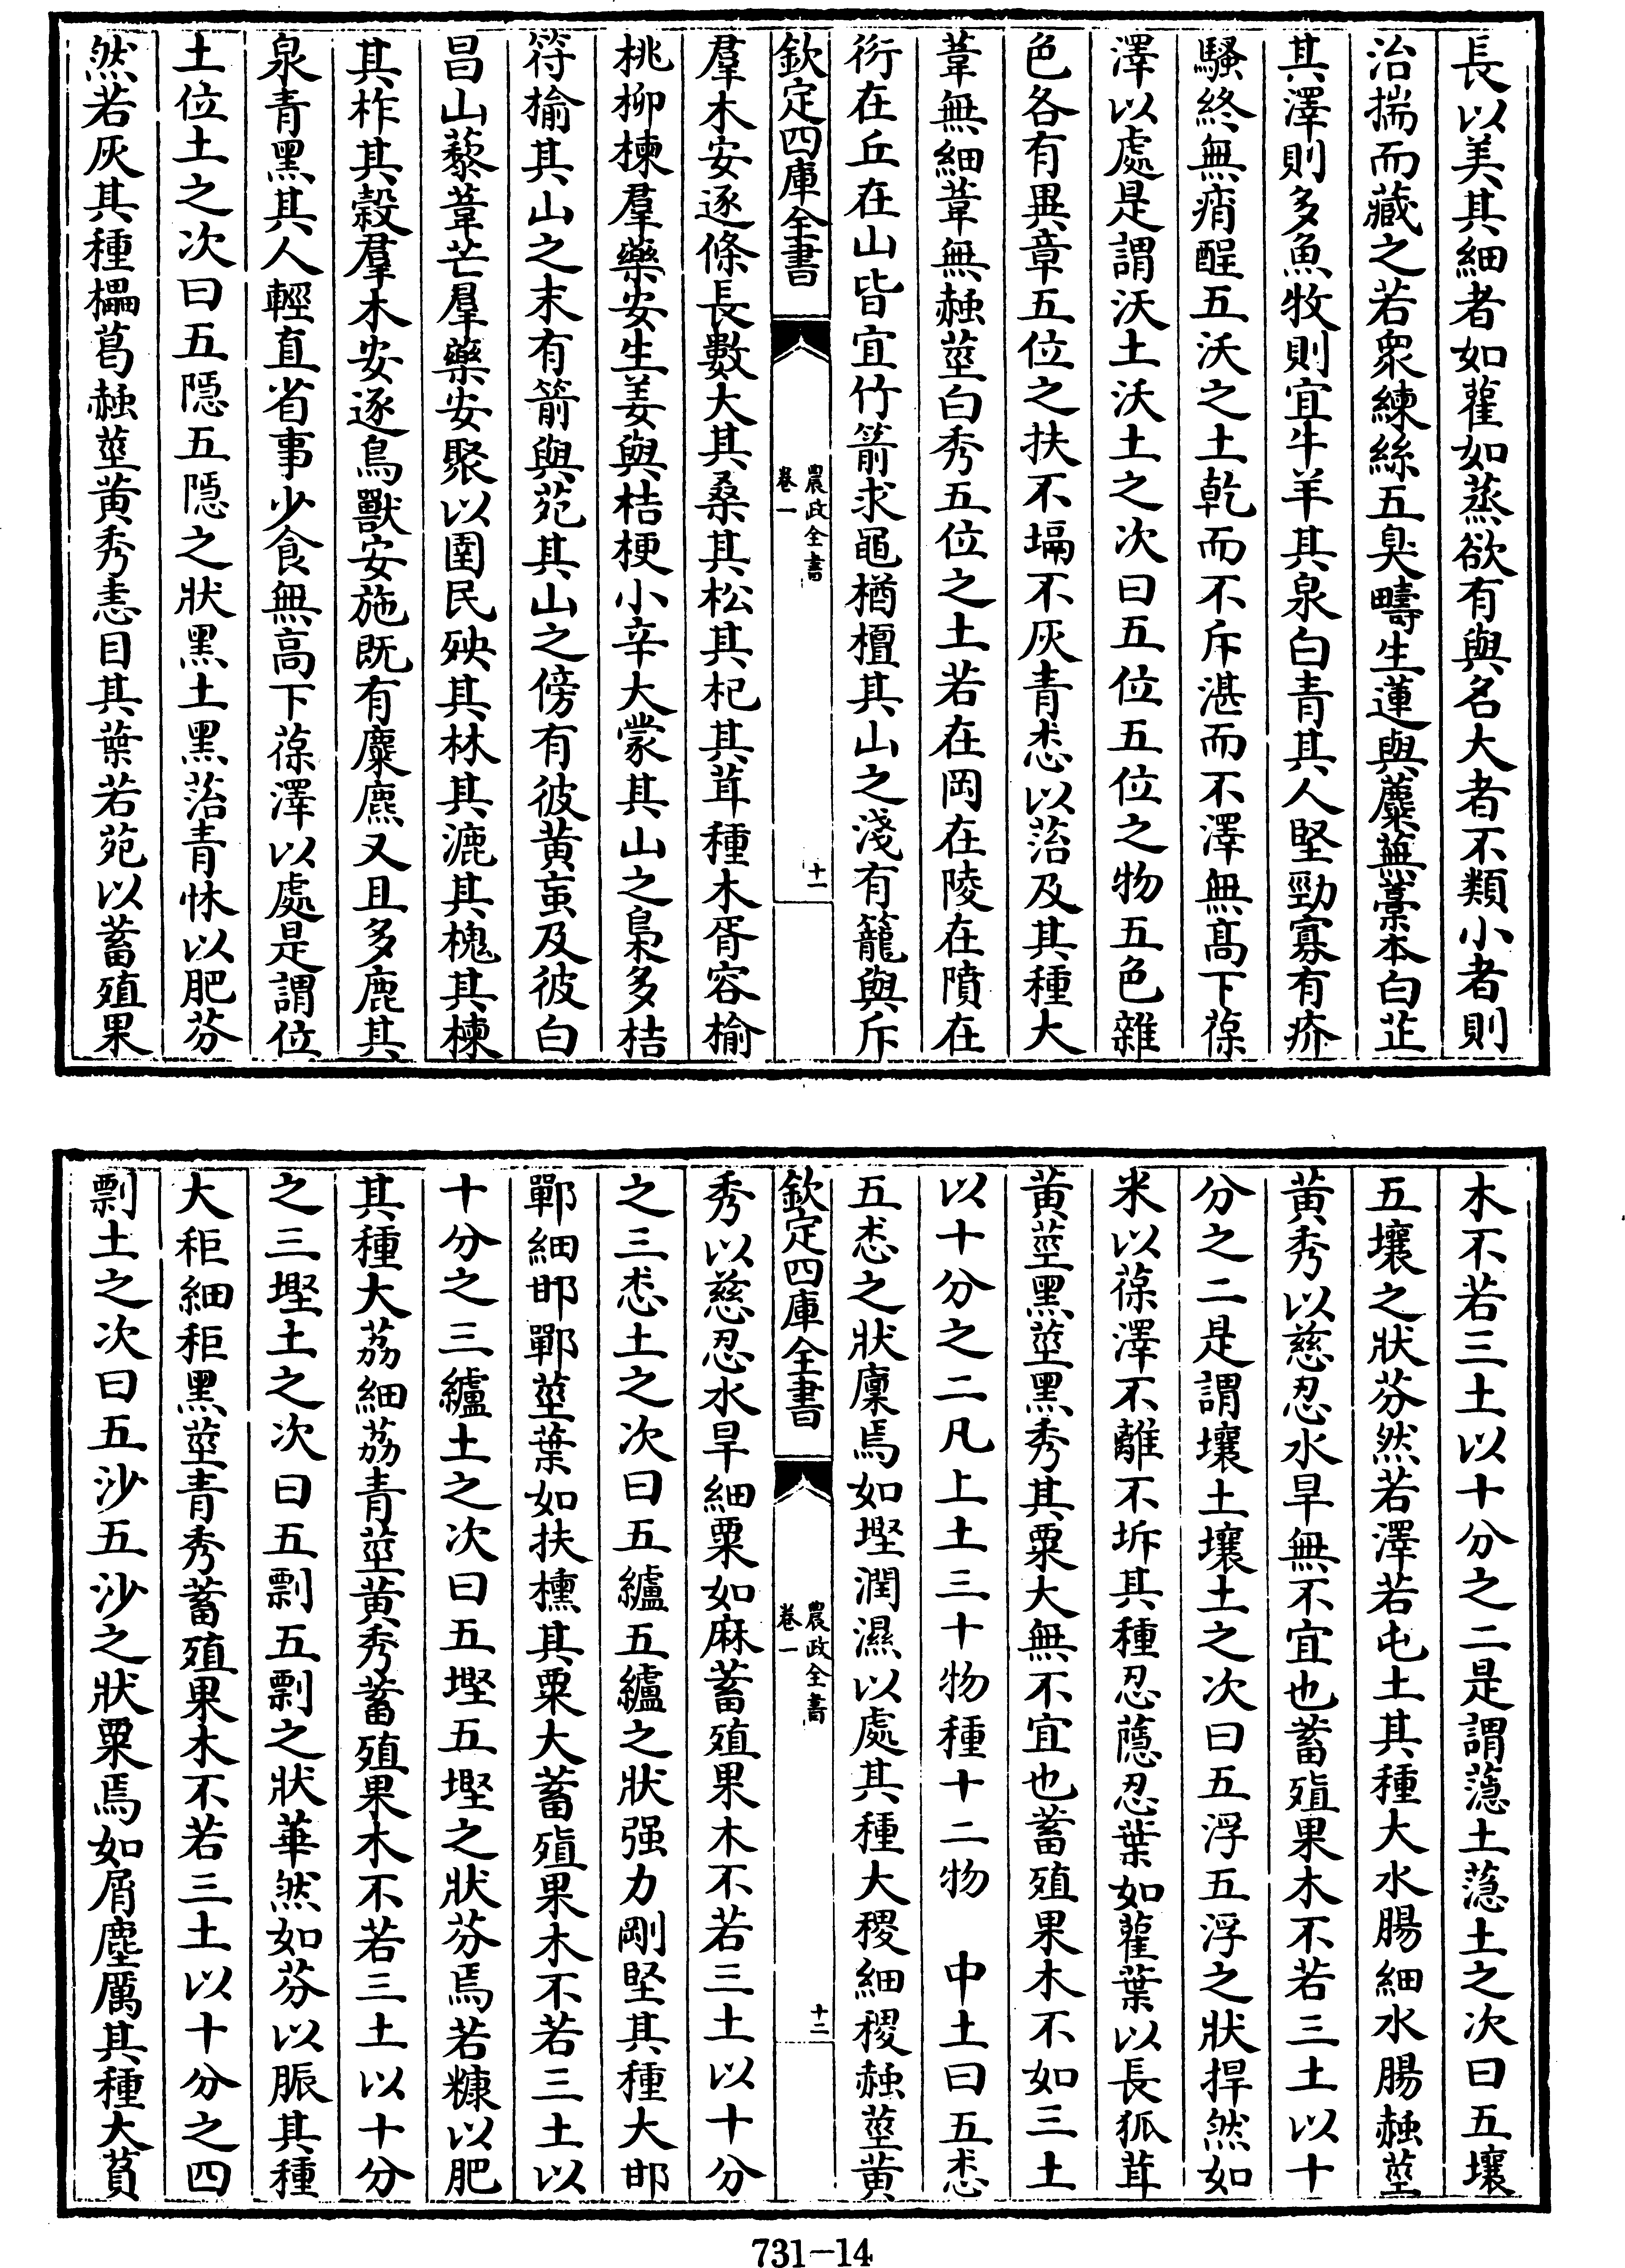 長以美其細者如雚如蒸欲有與名大者不類小者則
治揣而藏之若衆練絲五臭疇生蓮與蘪蕪藁本白芷
其澤則多魚牧則宜牛羊其泉白青其人堅勁寡有疥
騷終無痟酲五沃之土乾而不斥湛而不澤無髙下葆
澤以處是謂沃土沃土之次曰五位五位之物五色雜
色各有異章五位之扶不塥不灰青怸以菭及其種大
葦無細葦無赨莖白秀五位之土若在岡在陵在隫在
衍在丘在山皆宜竹箭求黽楢檀其山之淺有籠與斥
欽定四庫全書
農政全書
卷一
十一
羣木安逐條長數大其桑其松其杞其茸種木胥容榆
桃柳楝羣藥安生姜與桔梗小辛大蒙其山之梟多桔
符榆其山之末有箭與苑其山之傍有彼黄䖟及彼白
昌山藜葦芒羣藥安聚以圉民殃其林其漉其槐其楝
其柞其榖羣木安逐鳥獸安施既有麋麃又且多鹿其
泉青黑其人輕直省事少食無高下葆澤以處是謂位
土位土之次曰五隱五隱之狀黑土黑菭青怵以肥芬
然若灰其種櫑葛赨莖黄秀恚目其葉若苑以蓄殖果
木不若三土以十分之二是謂蘟土蘟土之次曰五壤
五壤之狀芬然若澤若屯土其種大水腸細水腸赨莖
黄秀以慈忍水旱無不宜也蓄殖果木不若三土以十
分之二是謂壤土壤土之次曰五浮五浮之狀捍然如
米以葆澤不離不坼其種忍蘟忍葉如雚葉以長狐茸
黄莖黑莖黑秀其粟大無不宜也蓄殖果木不如三土
以十分之二凡上土三十物種十二物　中土曰五怸
五怸之狀廩焉如壏潤濕以處其種大稷細稷赨莖黄
欽定四庫全書
農政全書
卷一
十二
秀以慈忍水旱細粟如麻蓄殖果木不若三土以十分
之三怸土之次曰五纑五纑之狀强力剛堅其種大邯
鄲細邯鄲莖葉如扶櫄其粟大蓄殖果木不若三土以
十分之三纑土之次曰五壏五壏之狀芬焉若糠以肥
其種大荔細荔青莖黄秀蓄殖果木不若三土以十分
之三壏土之次曰五剽五剽之狀華然如芬以脤其種
大秬細秬黑莖青秀蓄殖果木不若三土以十分之四
剽土之次曰五沙五沙之狀粟焉如屑塵厲其種大萯
731-14